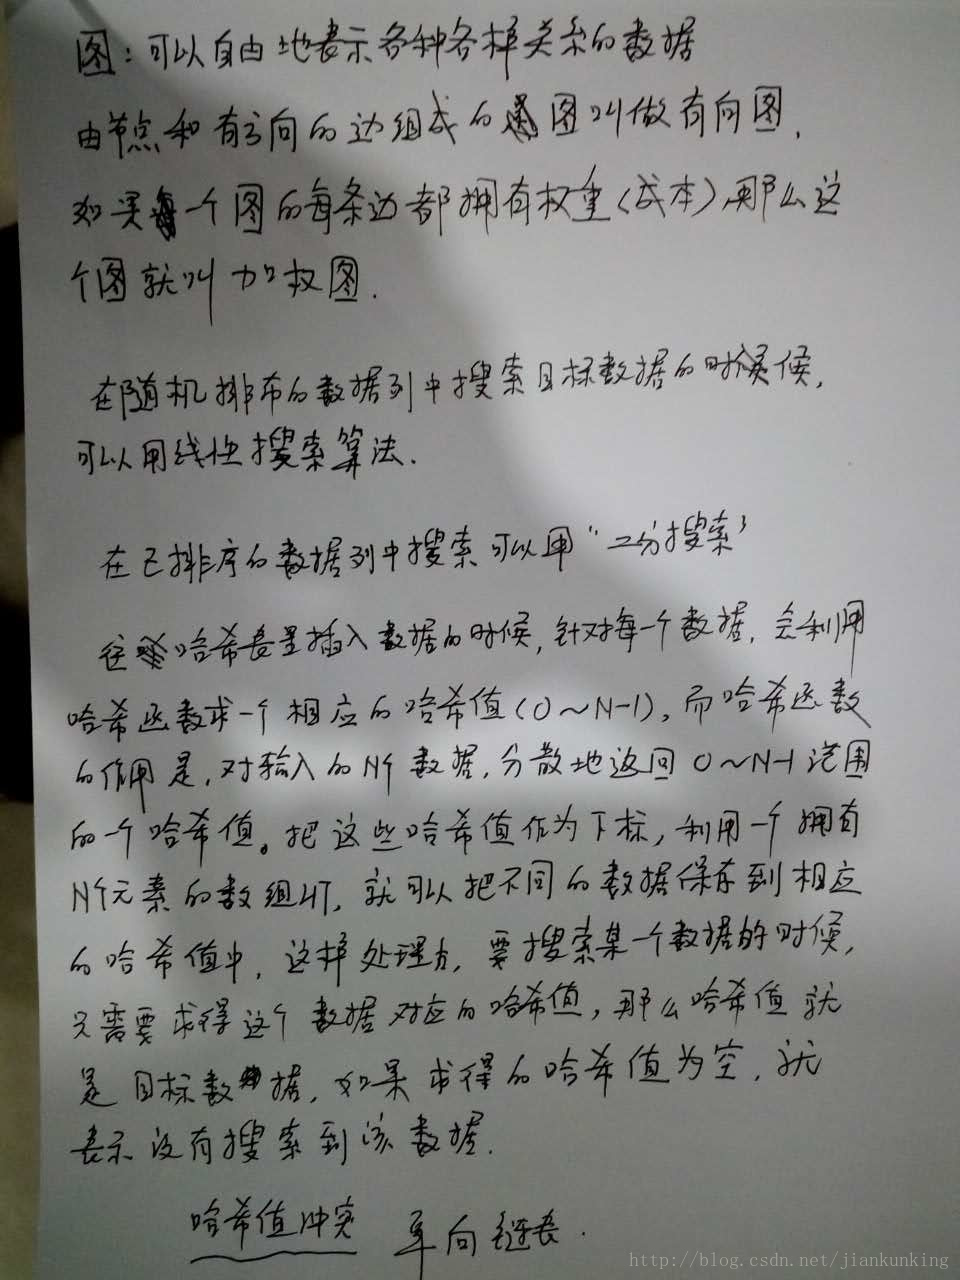 图：可以自由地表示各种各样关系的数据
由节点和有方向的边组成的图叫做有向图.
如果一个图的每条边都拥有权重(成本),那么这
个图就叫加权图.
在随机排布的数据列中搜索目标数据的时候,
可以用线性搜索算法.
在已排序的数据列中搜索可以用“二分搜索”
往哈希表里插入数据的时候,针对每一个数据,会利用
哈希函数求一个相应的哈希值(0～N-1),而哈希函数
的作用是,对输入的N个数据,分散地返回0～N-1范围
的一个哈希值。把这些哈希值作为下标,利用一个拥有
N个元素的数组HT,就可以把不同的数据保存到相应
的哈希值中,这样处理,要搜索某一个数据的时候,
只需要求得这个数据对应的哈希值,那么哈希值就
是目标数据,如果求得的哈希值为空,就
表示没有搜索到该数据.
哈希值冲突 单向链表.
http://blog.csdn.net/jiankunking